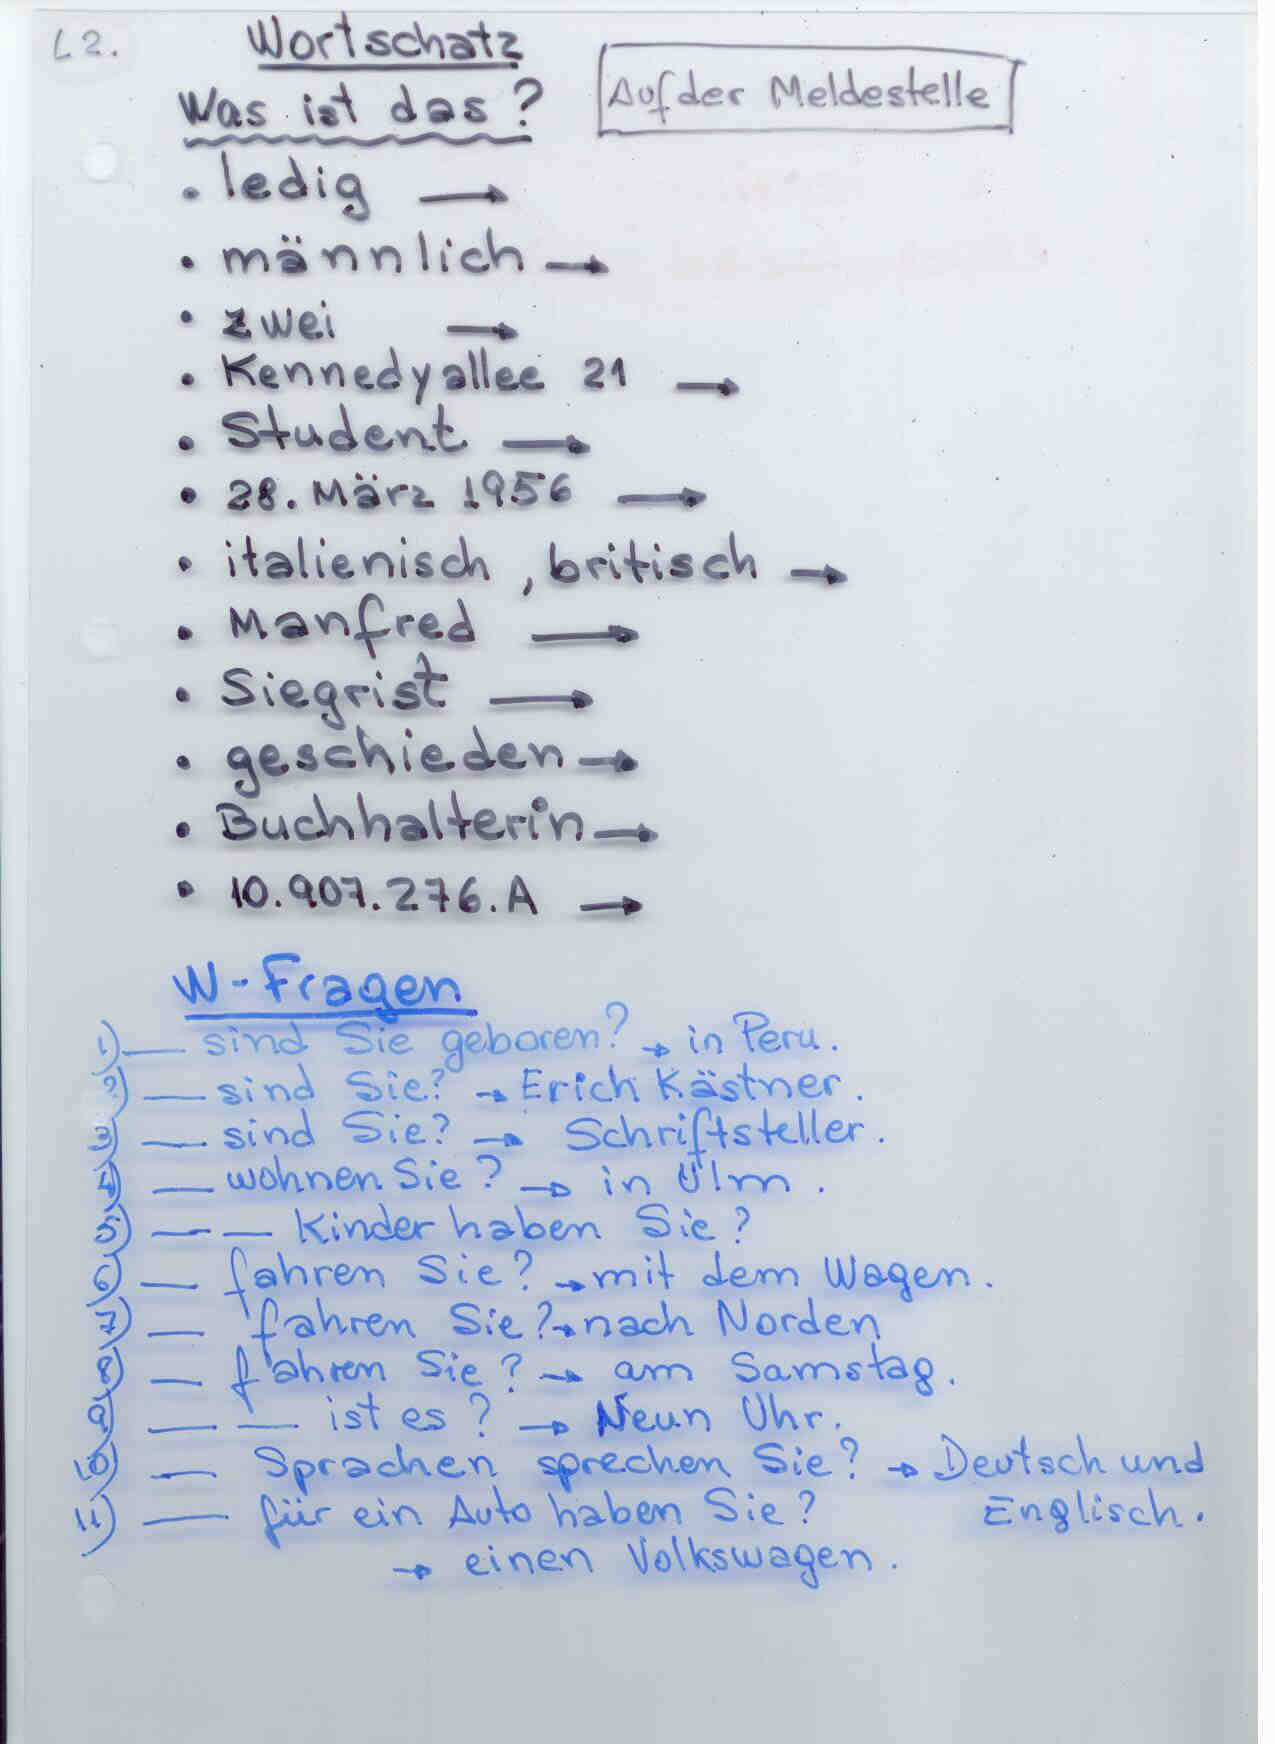 L2.
Wortschatz
Was ist das?
Auf der Meldestelle
• ledig →
• männlich →
• zwei →
• Kennedyallee 21 →
• Student →
• 28. März 1956 →
• italienisch, britisch →
• Manfred →
• Siegrist →
• geschieden →
• Buchhalterin →
• 10.907.276.A →
W-Fragen
1) __ sind Sie geboren? → in Peru.
2) __ sind Sie? → Erich Kästner.
3) __ sind Sie? → Schriftsteller.
4) __ wohnen Sie? → in Ulm.
5) __ __ Kinder haben Sie?
6) __ fahren Sie? → mit dem Wagen.
7) __ fahren Sie? → nach Norden
8) __ fahren Sie? → am Samstag.
9) __ __ ist es? → Neun Uhr.
10) __ Sprachen sprechen Sie? → Deutsch und
Englisch.
11) __ für ein Auto haben Sie?
→ einen Volkswagen.